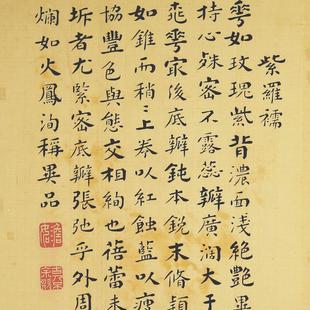 紫羅襦
華如玫瑰紫背濃面淺絕艷畢
持心殊密不露蕊瓣廣濶大于
華冣後底瓣鈍本銳末脩頴
如錐而稍〻上拳以紅蝕藍以瘦
協豐色與態交相絢也蓓蕾未
坼者尤緊密底瓣張弛乎外周
爛如火鳳洵稱異品